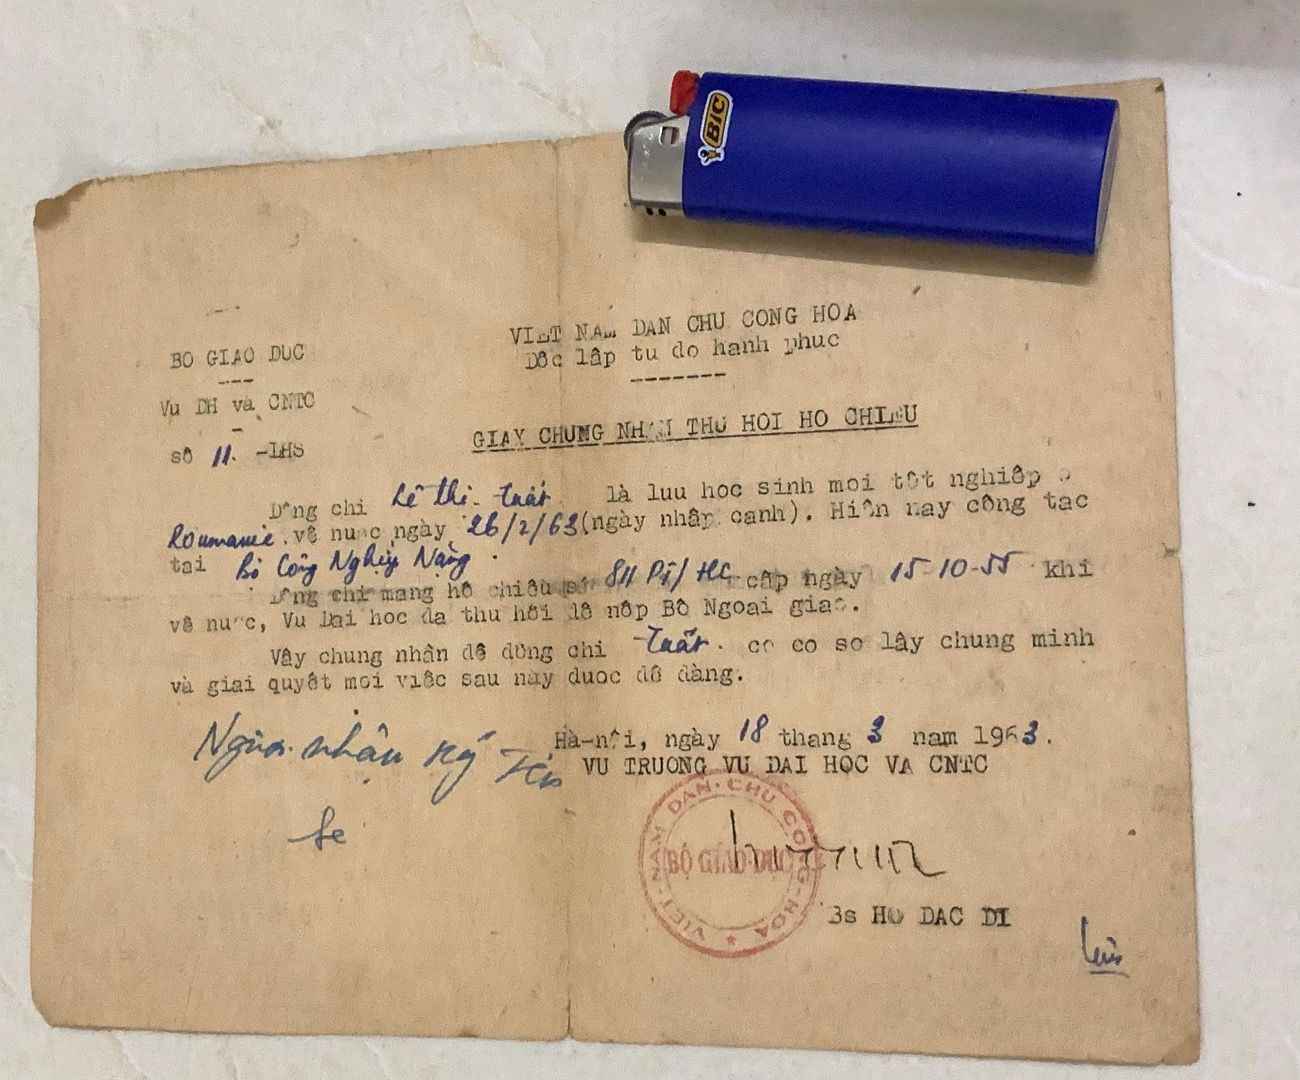 BIC
VIET NAM DAN CHU CONG HOA
Dôc lâp tu do hanh phuc
-------
BO GIAO DUC
---
Vu DH và CNTC
-
sô 11. -LHS
GIAY CHUNG NHAN THU HOI HO CHIEU
Dông chi Lê thi Tuất là luu hoc sinh moi tôt nghiêp o
Roumanie vê nuoc ngày 26/2/63 (ngày nhâp canh). Hiên nay công tac
tai Bộ Công Nghiệp Nặng.
Dông chi mang hô chiêu sô 811 /HC câp ngày 15-10-55 khi
vê nuoc, Vu Dai hoc da thu hôi dê nôp Bô Ngoai giao.
Vây chung nhân dê dông chi Tuất. co co so lây chung minh
và giai quyêt moi viêc sau này duoc dê dàng.
Hà-nôi, ngày 18 thang 3 nam 1963.
VU TRUONG VU DAI HOC VA CNTC
Người nhận ký tên
VIET-NAM DAN-CHU CONG-HOA
BỘ GIÁO-DỤC
Bs HO DAC DI